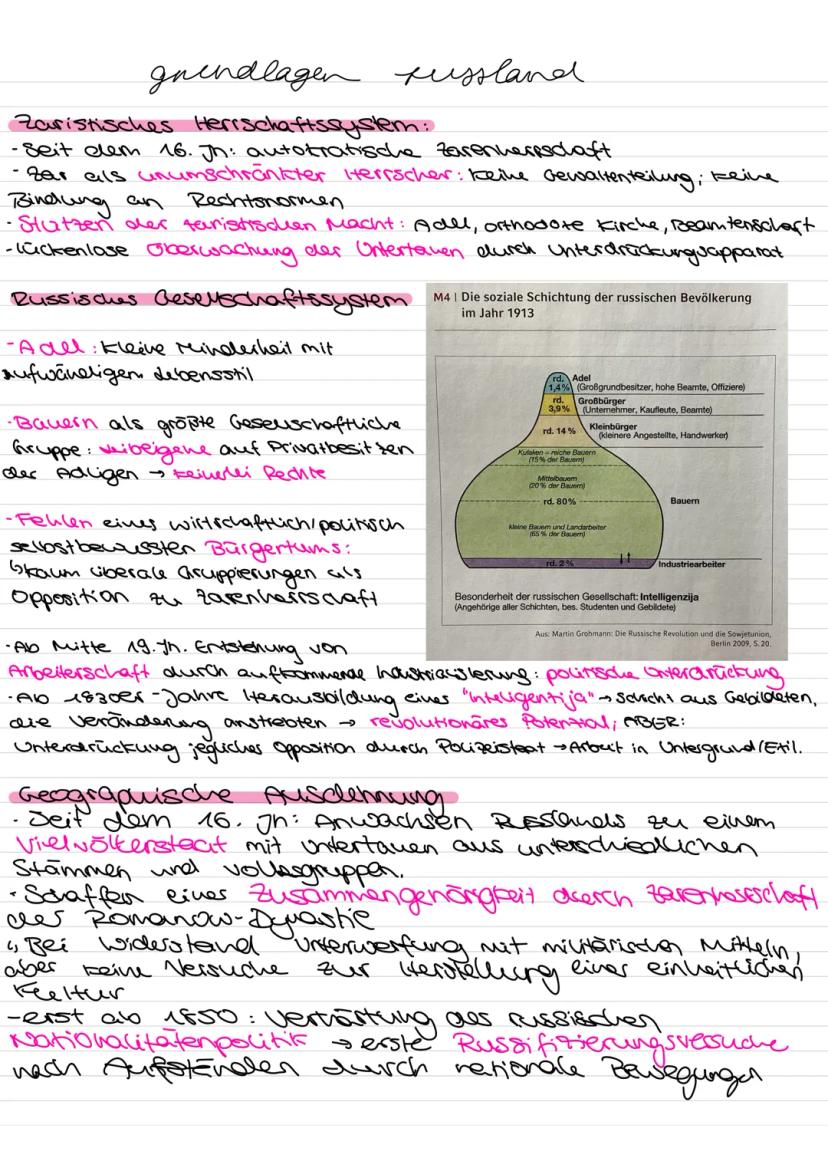 grundlagen russland
Zaristisches Herrschaftssystem:
- Seit dem 16. Jh: autokratische Zarenherrschaft
- Zar als unumschränkter Herrscher: keine Gewaltenteilung; keine
Bindung an Rechtsnormen
- Stützen der zaristischen Macht: Adel, orthodoxe Kirche, Beamtenschaft
- lückenlose Überwachung der Untertanen durch Unterdrückungsapparat
Russisches Gesellschaftssystem
- Adel: kleine Minderheit mit
aufwändigem Lebensstil
- Bauern als größte Gesellschaftliche
Gruppe: Leibeigene auf Privatbesitzen
der Adligen → keinerlei Rechte
- Fehlen eines wirtschaftlich/politisch
selbstbewussten Bürgertums:
↳ kaum liberale Gruppierungen als
Opposition zu Zarenherrschaft
M4 | Die soziale Schichtung der russischen Bevölkerung
im Jahr 1913
rd. 1,4% Adel
(Großgrundbesitzer, hohe Beamte, Offiziere)
rd. 3,9% Großbürger
(Unternehmer, Kaufleute, Beamte)
rd. 14% Kleinbürger
(kleinere Angestellte, Handwerker)
Kulaken – reiche Bauern
(15% der Bauern)
Mittelbauern
(20% der Bauern)
rd. 80% Bauern
kleine Bauern und Landarbeiter
(65% der Bauern)
rd. 2% Industriearbeiter
Besonderheit der russischen Gesellschaft: Intelligenzija
(Angehörige aller Schichten, bes. Studenten und Gebildete)
Aus: Martin Grohmann: Die Russische Revolution und die Sowjetunion,
Berlin 2009, S. 20.
- Ab Mitte 19. Jh. Entstehung von
Arbeiterschaft durch aufkommende Industrialisierung: politische Unterdrückung
- Ab 1830er-Jahre Herausbildung einer "Inteligentija" → Schicht aus Gebildeten,
die Veränderung anstrebten → revolutionäres Potenzial; ABER:
Unterdrückung jeglicher Opposition durch Polizeistaat → Arbeit in Untergrund/Exil.
Geographische Ausdehnung
- Seit dem 16. Jh: Anwachsen Russlands zu einem
Vielvölkerstaat mit Untertanen aus unterschiedlichen
Stämmen und Volksgruppen.
- Schaffen einer Zusammengehörigkeit durch Zarenherrschaft
der Romanow-Dynastie
↳ Bei Widerstand Unterwerfung mit militärischen Mitteln,
aber keine Versuche zur Herstellung einer einheitlichen
Kultur
- erst ab 1850: Verhärtung der russischen
Nationalitätenpolitik → erste Russifizierungsversuche
nach Aufständen durch nationale Bewegungen